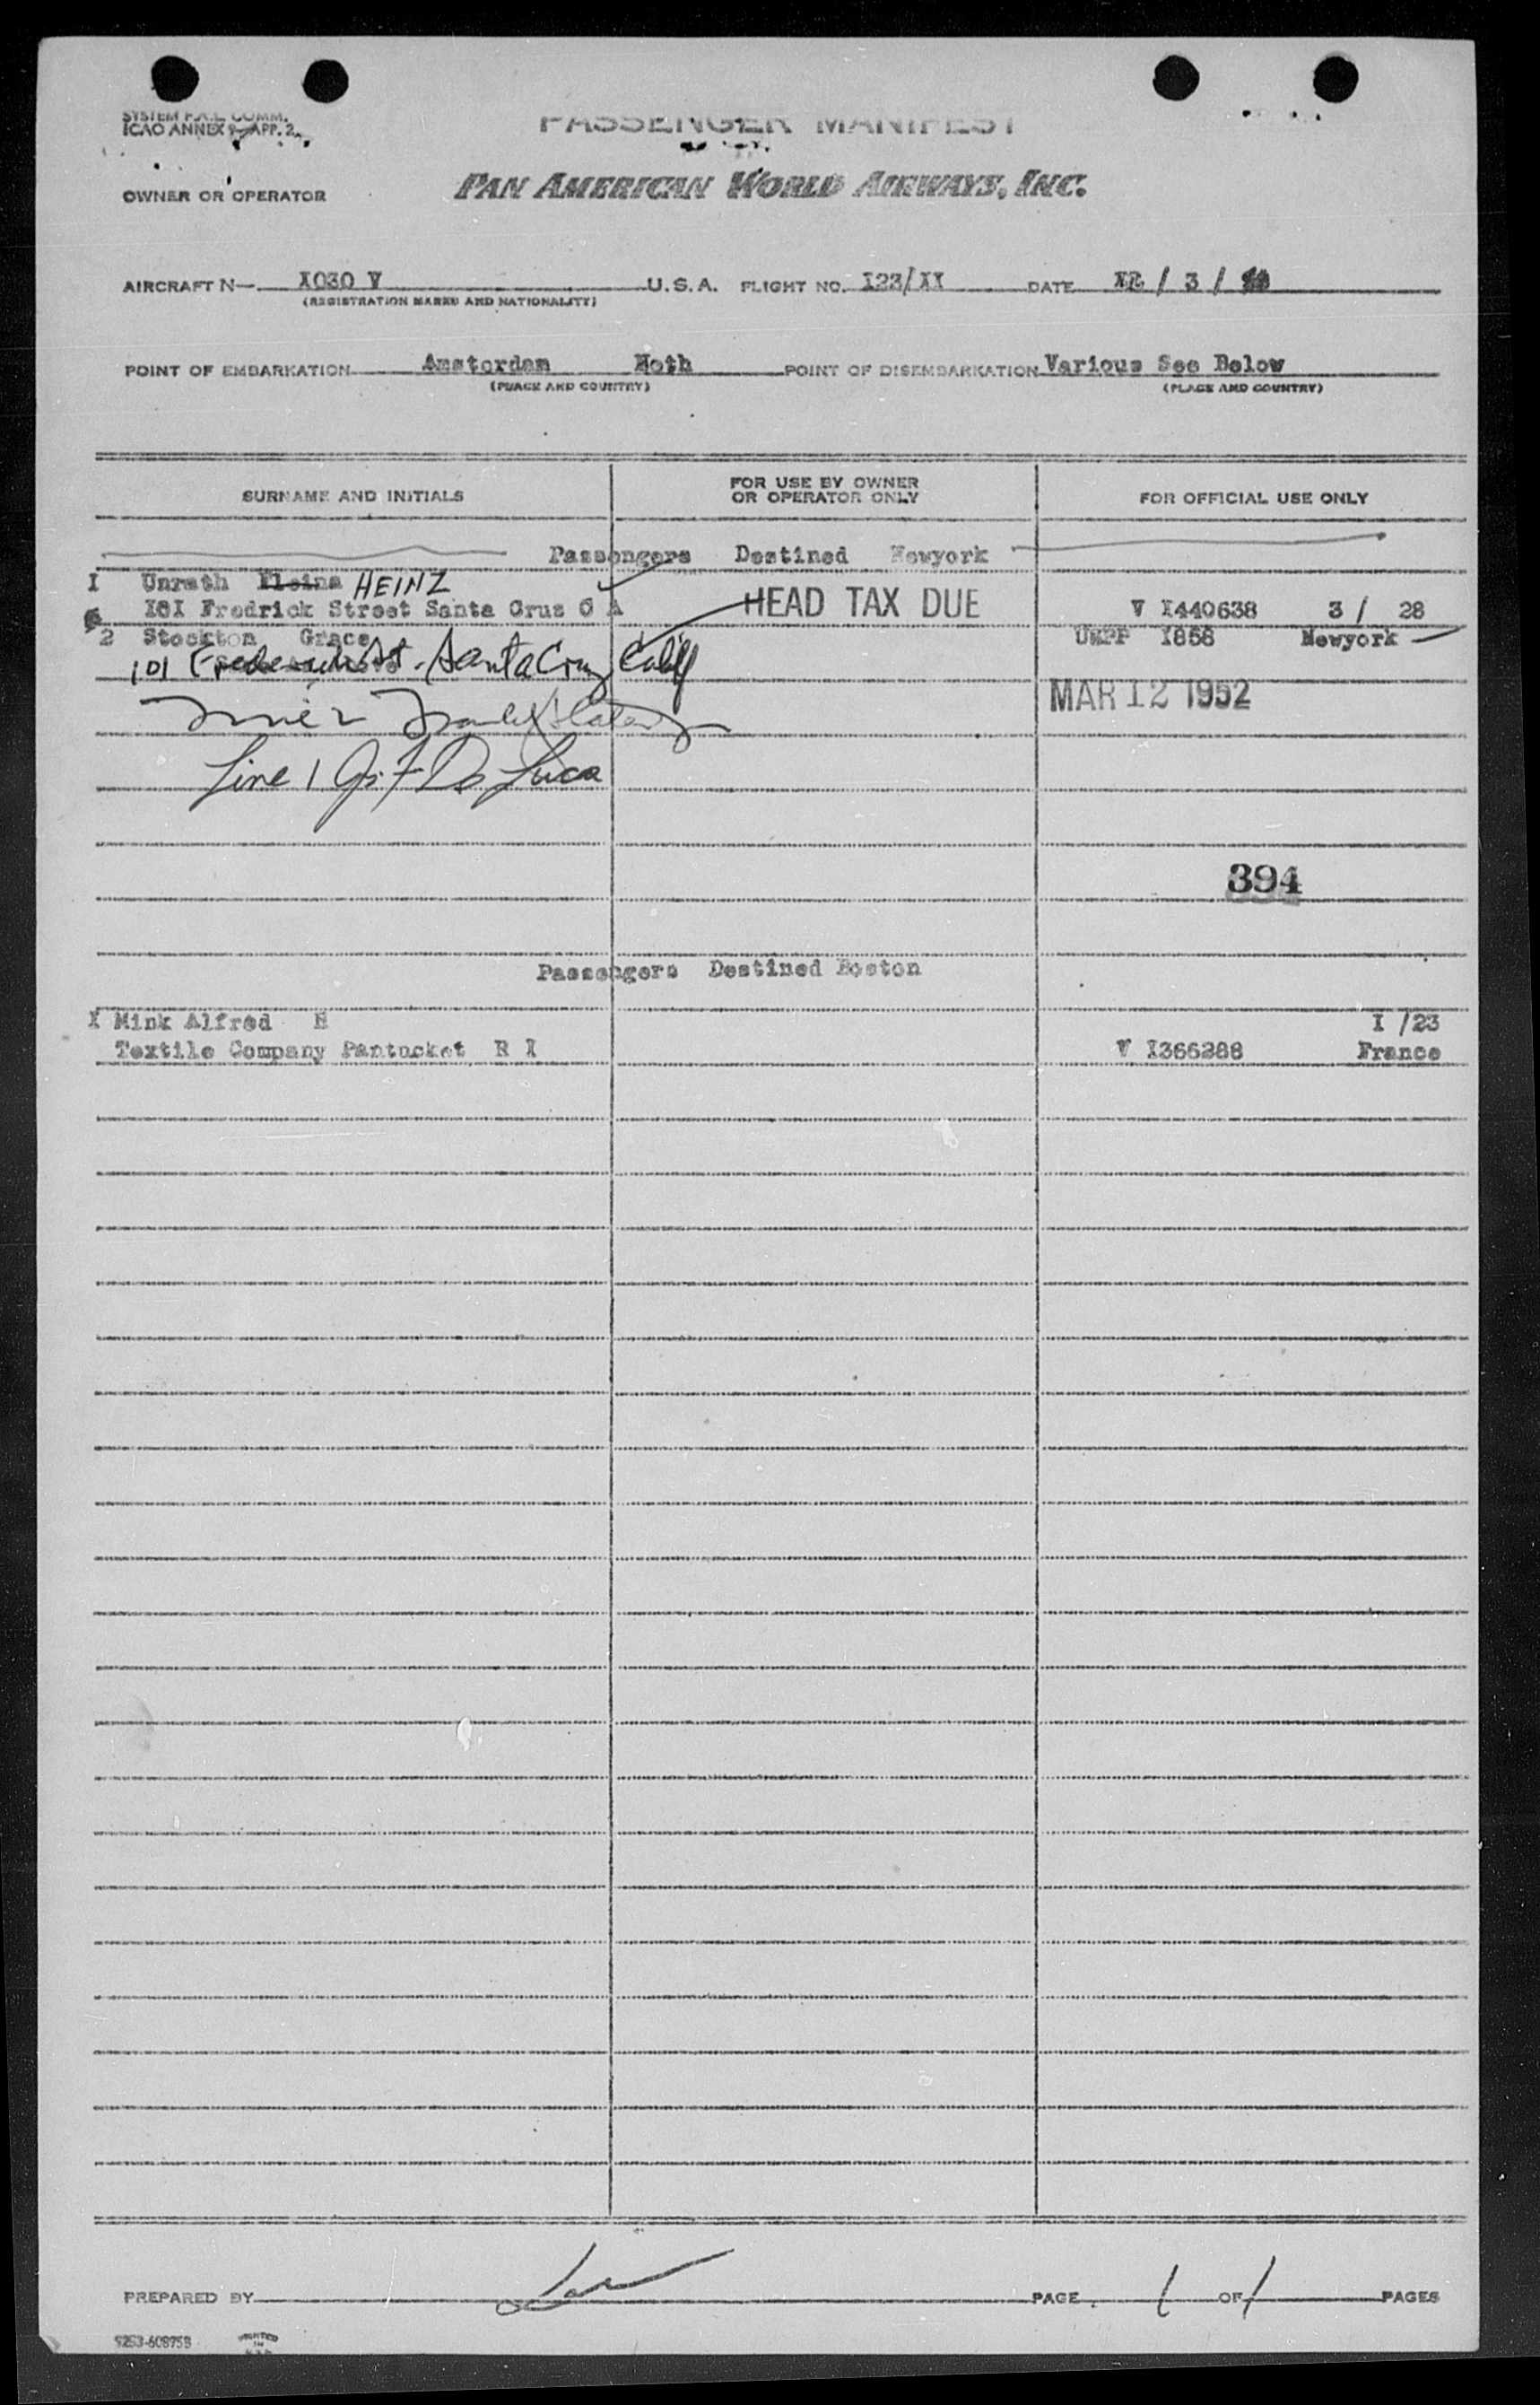 SYSTEM F.A.L. COMM.
ICAO ANNEX 9—APP. 2
PASSENGER MANIFEST
OWNER OR OPERATOR PAN AMERICAN WORLD AIRWAYS, INC.
AIRCRAFT N— I030 V U.S.A. FLIGHT NO. I23/II DATE / 3 /
(REGISTRATION MARKS AND NATIONALITY)
POINT OF EMBARKATION Amsterdam Neth POINT OF DISEMBARKATION Various See Below
(PLACE AND COUNTRY) (PLACE AND COUNTRY)
SURNAME AND INITIALS FOR USE BY OWNER OR OPERATOR ONLY FOR OFFICIAL USE ONLY
Passengers Destined Newyork
I Unrath HEINZ
I0I Fredrick Street Santa Cruz C A HEAD TAX DUE V I440638 3 / 28
2 Stockton Grace I858 Newyork
101 Frederick St. Santa Cruz Calif
MAR 12 1952
Line 1 De Luca
394
Passengers Destined Boston
I Mink Alfred E I /23
Textile Company Pantucket R I V I366288 France
PREPARED BY PAGE 1 OF 1 PAGES
9253-60875B PRINTED IN